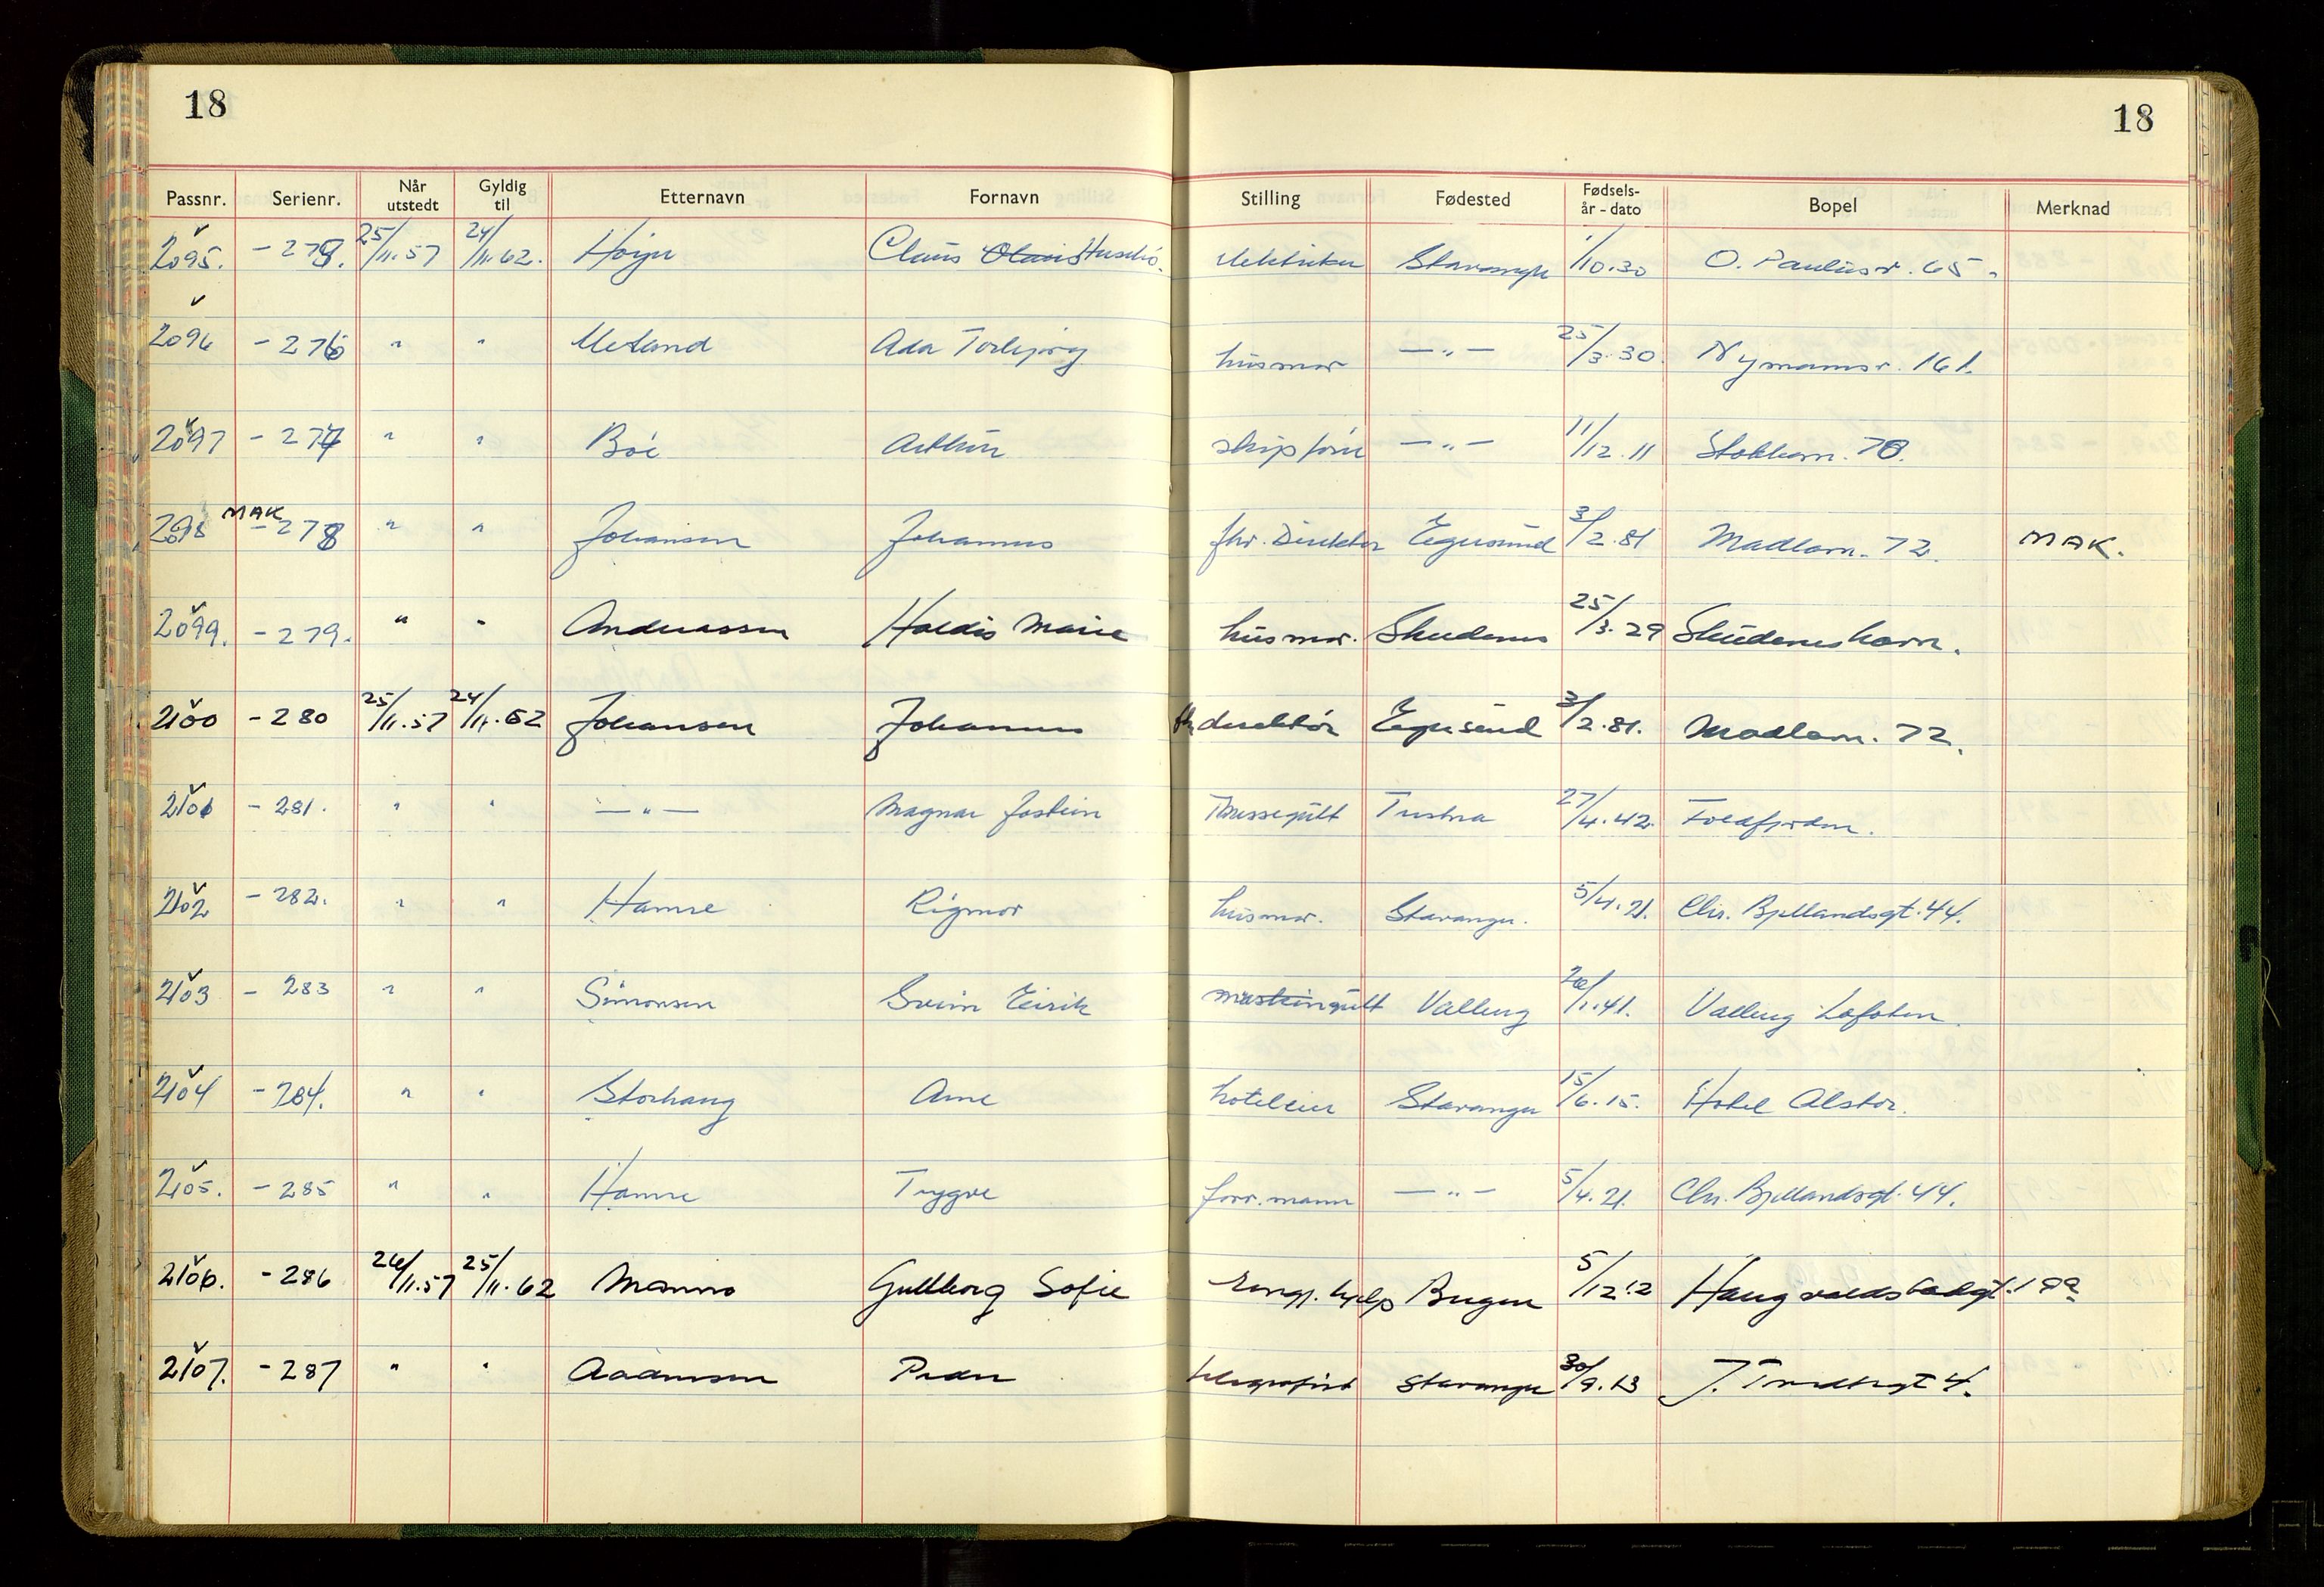 18
18
Passnr. Serienr. Når utstedt Gyldig til Etternavn Fornavn Stilling Fødested Fødsels- år - dato Bopel Merknad
2095. - 25/11.57 24/11.62. Claus Stavanger 1/10.30 65.
2096 - 276 " " Ada Torbjørg husmor —"— 25/3.30. Nymannsv. 161.
2097 - 277 " " Bøe Arthur skipsfører —"— 11/12.11 Stokkavn. 70.
2098 MAK - 278 " " Johansen Johannes fhv. Direktør Egersund 3/2.81 Madlavn. 72. MAK.
2099. - 279. " " Andreassen Haldis Marie husmor. Skudenes 25/3.29 Skudeneshavn.
2100 - 280 25/11.57 24/11.62 Johansen Johannes fhv direktør Egersund 3/2.81. Madlavn. 72.
2101 - 281. " " —"— Magnar Jostein Messegutt Tustna 27/4.42. Foldfjorden.
2102 - 282. " " Hamre Rigmor husmor. Stavanger. 5/4.21. Chr. Bjellandsgt. 44.
2103 - 283 " " Simonsen Svein Eirik maskingutt Valberg 26/1.41. Valberg Lofoten.
2104 - 284. " " Storhaug Arne hoteleier Stavanger 15/6.15. Hotel Alstor.
2105. - 285 " " Hamre Trygve forr.mann —"— 5/4.21. Chr. Bjellandsgt. 44.
2106. - 286 26/11.57 25/11.62 Gullborg Sofie rengj. hjelp Bergen 5/12.12 Haugvaldstadgt.
2107. - 287 " " Aadnesen Peder telegrafist Stavanger 30/9.13 4.